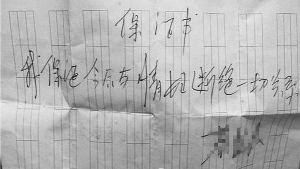 保证书
我保证今后与情妇断绝一切关系